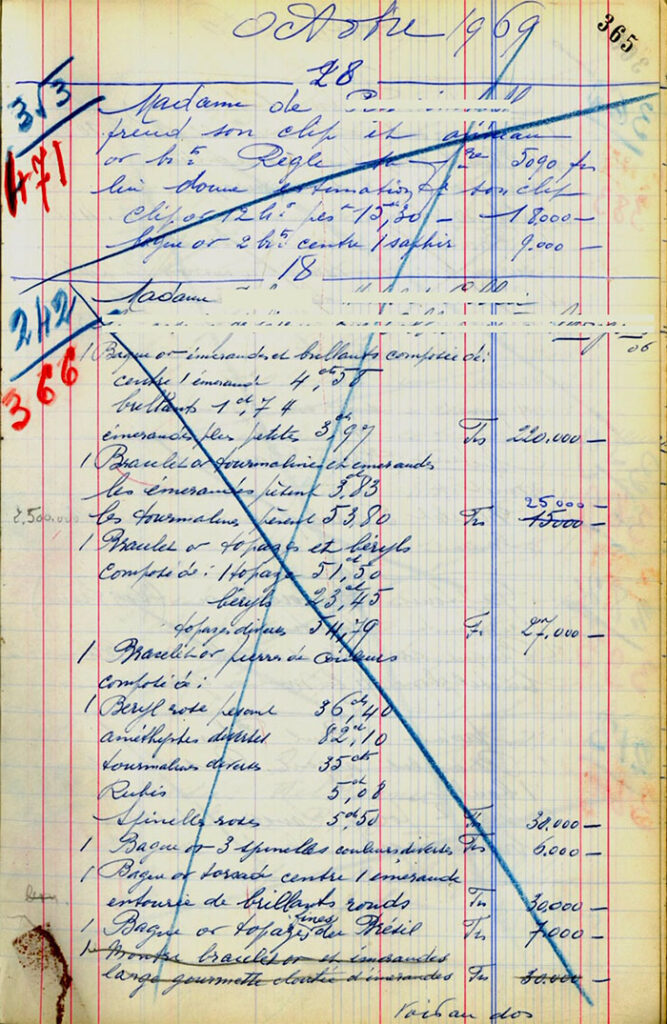 365
Octobre 1969
28
3√3
471
Madame de
prend son clip et anneau
or bts Règle 5090 frs
lui donne estimation pr son clip
clip or 12 bts pes 15,30 — 18000 —
bague or 2 bts centre 1 saphir 9.000 —
18
242
366
Madame
1 Bague or émeraudes et brillants composée de:
centre 1 émeraude 4 cts,58
brillants 1 ct,74
émeraudes plus petites 3 cts,97 Frs 220.000 —
1 Bracelet or tourmalines et émeraudes
les émeraudes pèsent 3,83 25000 —
les tourmalines pèsent 53,80 Frs 15000 —
1 Bracelet or topazes et béryls
composé de: 1 topaze 51,50
béryls 23,45
topazes diverses 54,79 Fr 27,000 —
1 Bracelet or pierres de couleurs
composé de:
1 Beryl rose pesant 36 cts,40
améthystes diverses 82 ct,10
tourmalines diverses 35 cts
Rubis 5 ct,08
Spinelles roses 5 ct,50 Frs 30,000 —
1 Bague or 3 spinelles couleurs divertes Frs 6.000 —
1 Bague or torsade centre 1 émeraude
entourée de brillants ronds Frs 30.000 —
1 Bague or topazes fines du Brésil Frs 7.000 —
1 Montre bracelet or et émeraudes
large gourmette cloutée d'émeraudes Frs 30.000 —
Voir au dos